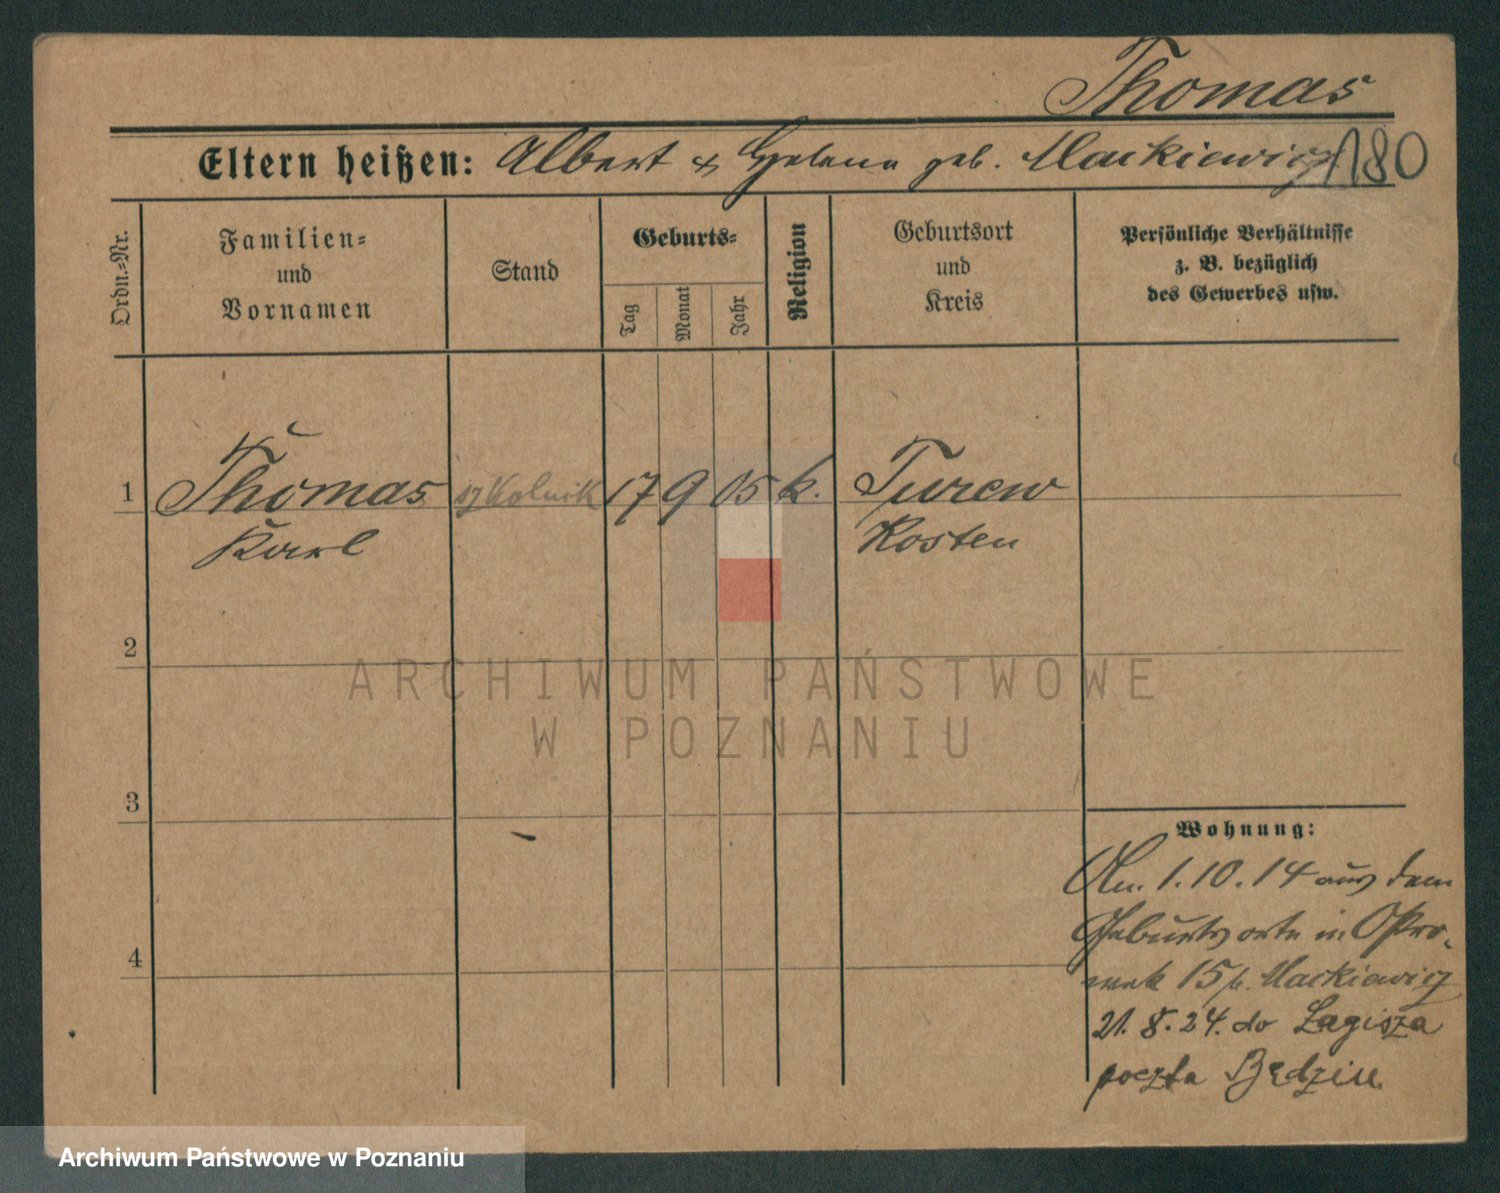 Thomas
Eltern heißen: Albert & Helena geb. Mackiewicz 180
Ordn.=Nr.
Familien=
und
Vornamen
Stand
Geburts=
Tag
Monat
Jahr
Religion
Geburtsort
und
Kreis
Persönliche Verhältnisse
z. B. bezüglich
des Gewerbes usw.
1 Thomas szkolnik 17 9 05 k. Turew
Karl Kosten
2
ARCHIWUM PAŃSTWOWE
W POZNANIU
3
4
Wohnung:
An. 1.10.14 aus dem
Geburtsorte in
15 b. Mackiewicz
21.8.24. do Łagisza
poczta Będzin.
Archiwum Państwowe w Poznaniu